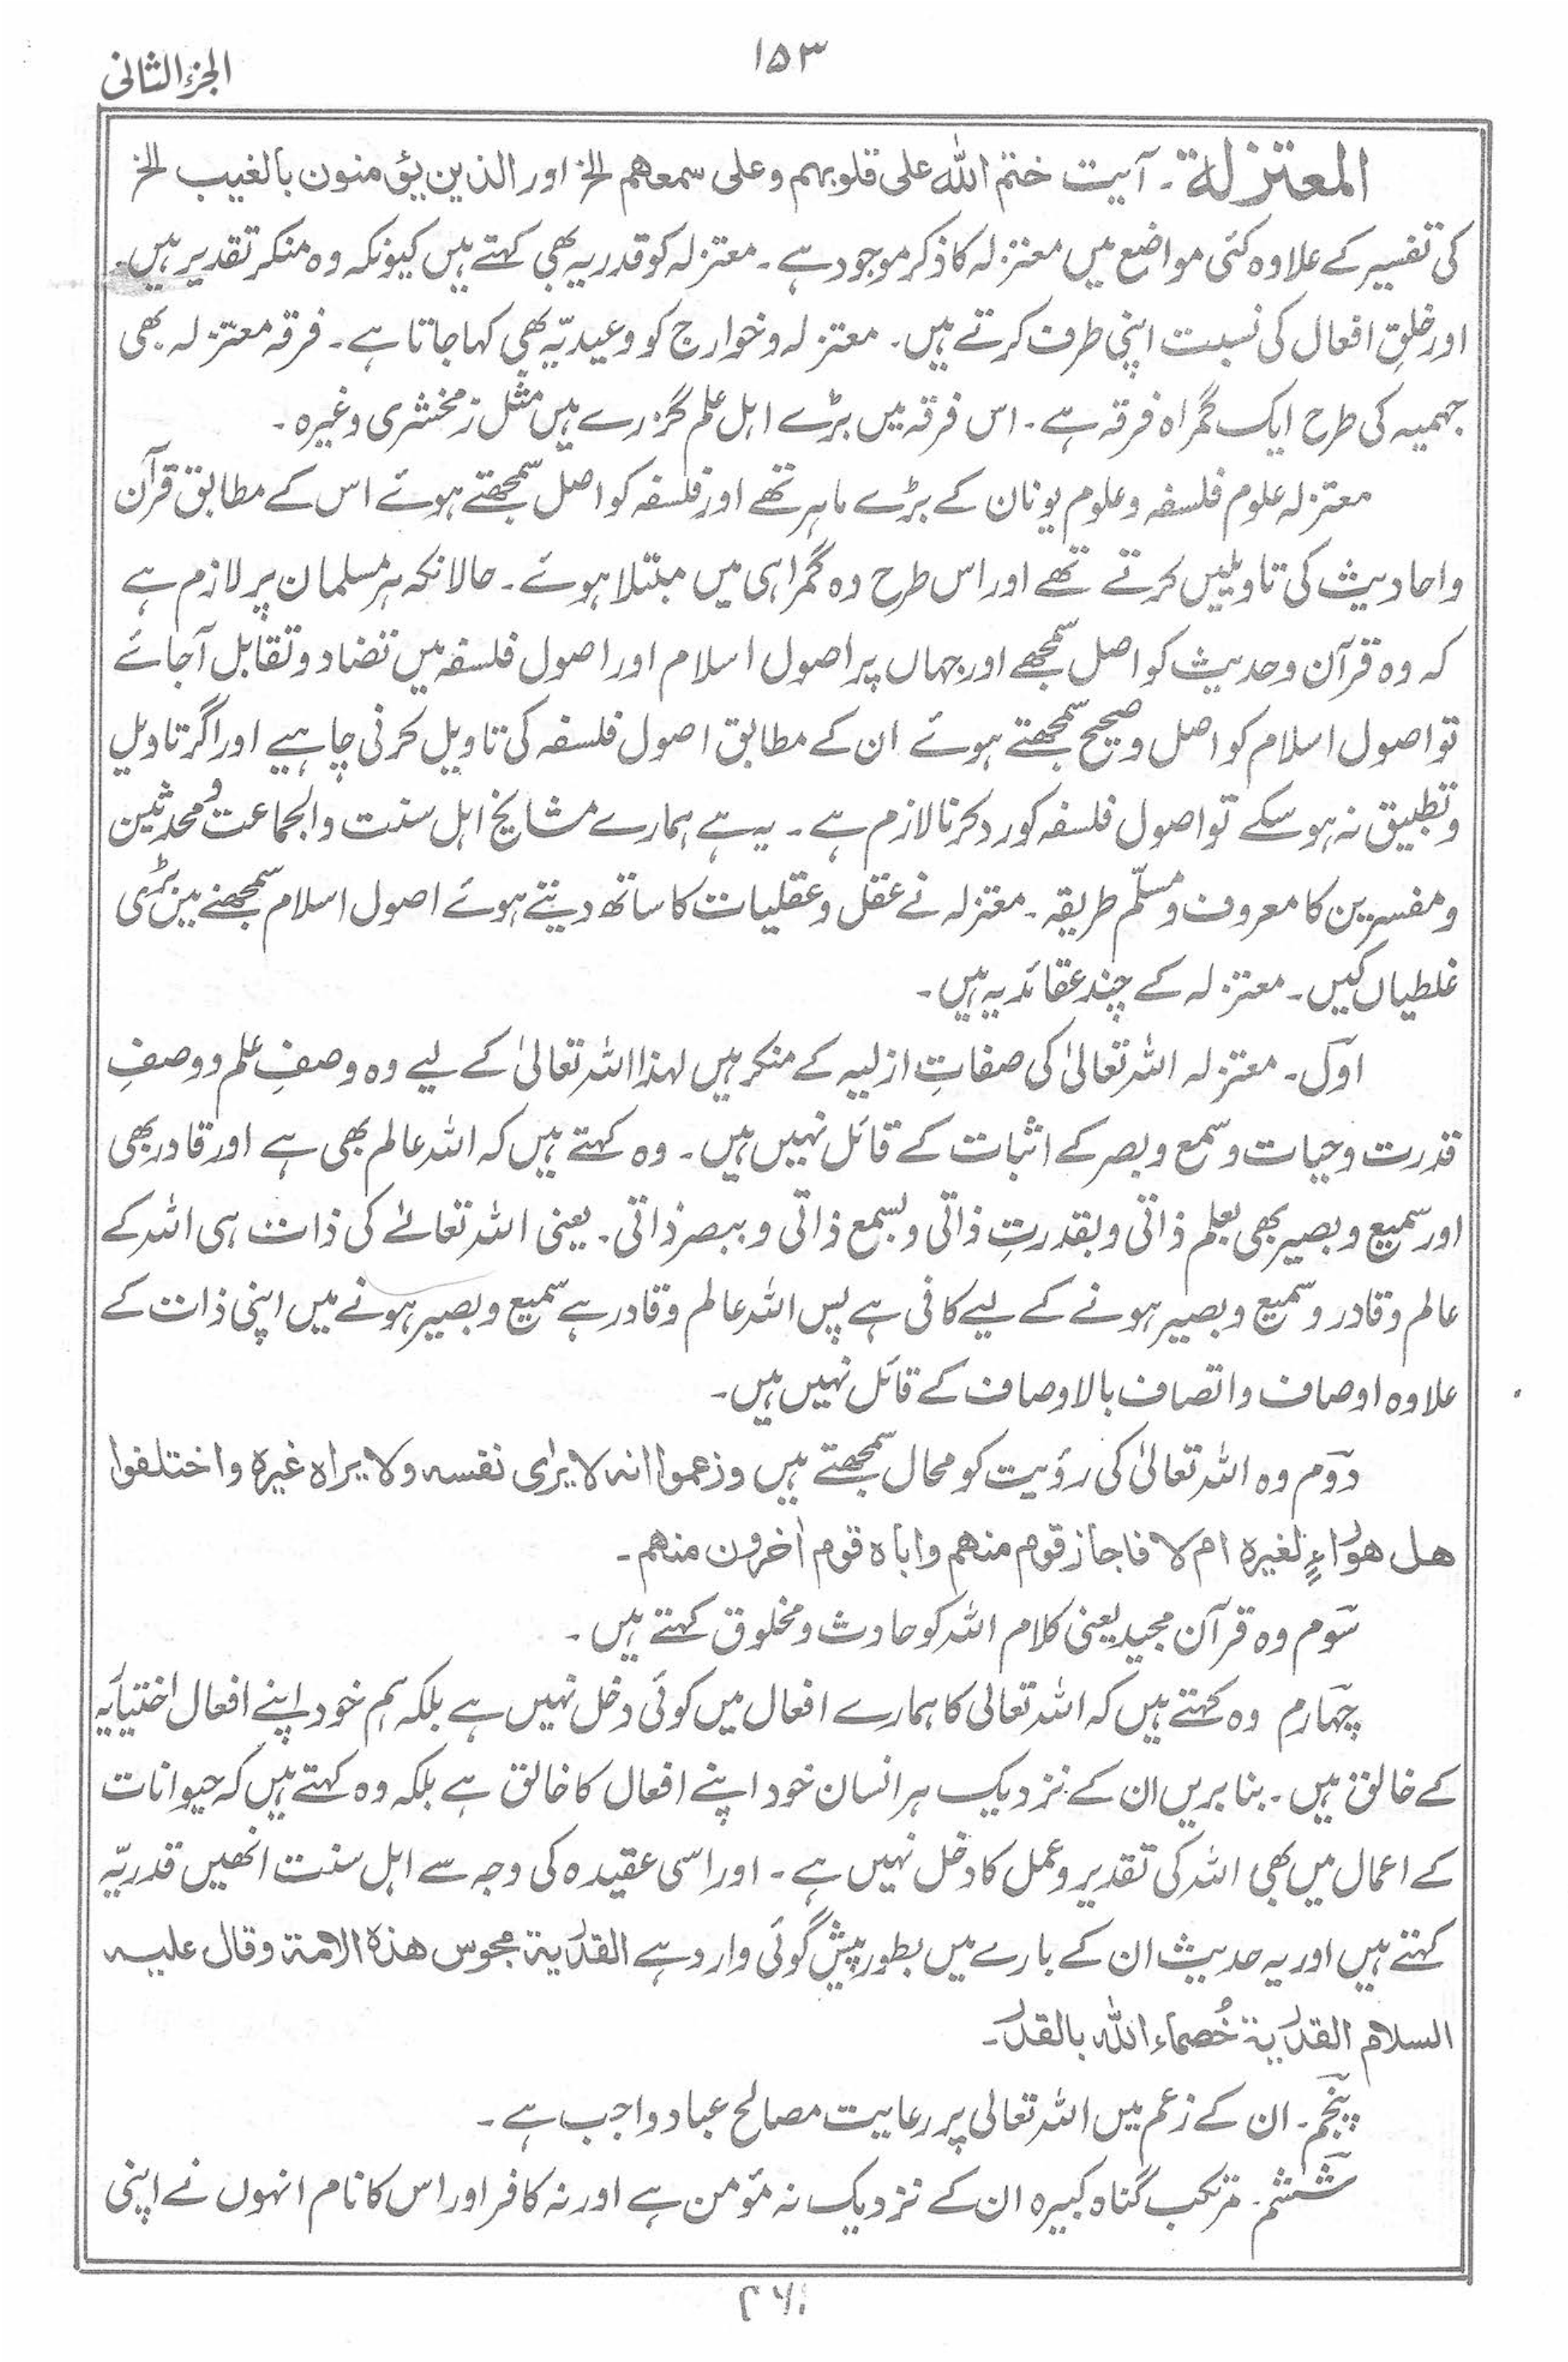 ۱۵۳
الجزءالثانی
المعتزلة۔ آیت ختم اللہ علی قلوبہم وعلی سمعھم الخ اور الذین یؤمنون بالغیب الخ
کی تفسیر کے علاوہ کئی مواضع میں معتزلہ کا ذکر موجود ہے۔ معتزلہ کو قدریہ بھی کہتے ہیں کیونکہ وہ منکر تقدیر ہیں۔
اور خلقِ افعال کی نسبت اپنی طرف کرتے ہیں۔ معتزلہ وخوارج کو وعیدیّہ بھی کہا جاتا ہے۔ فرقہ معتزلہ بھی
جہمیہ کی طرح ایک گمراہ فرقہ ہے۔ اس فرقہ میں بڑے اہل علم گزرے ہیں مثل زمخشری وغیرہ۔
معتزلہ علوم فلسفہ وعلوم یونان کے بڑے ماہر تھے اور فلسفہ کو اصل سمجھتے ہوئے اس کے مطابق قرآن
واحادیث کی تاویلیں کرتے تھے اور اس طرح وہ گمراہی میں مبتلا ہوئے۔ حالانکہ ہر مسلمان پر لازم ہے
کہ وہ قرآن وحدیث کو اصل سمجھے اور جہاں پر اصول اسلام اور اصول فلسفہ میں تضاد وتقابل آجائے
تو اصول اسلام کو اصل وصحیح سمجھتے ہوئے ان کے مطابق اصول فلسفہ کی تاویل کرنی چاہیے اور اگر تاویل
وتطبیق نہ ہوسکے تو اصول فلسفہ کو رد کرنا لازم ہے۔ یہ ہے ہمارے مشایخ اہل سنت والجماعت و محدثین
ومفسرین کا معروف ومسلّم طریقہ۔ معتزلہ نے عقل وعقلیات کا ساتھ دیتے ہوئے اصول اسلام سمجھنے میں بڑی
غلطیاں کیں۔ معتزلہ کے چند عقائد یہ ہیں۔
اوّل۔ معتزلہ اللہ تعالیٰ کی صفاتِ ازلیہ کے منکر ہیں لہذا اللہ تعالیٰ کے لیے وہ وصفِ علم ووصفِ
قدرت وحیات وسمع وبصر کے اثبات کے قائل نہیں ہیں۔ وہ کہتے ہیں کہ اللہ عالم بھی ہے اور قادر بھی
اور سمیع وبصیر بھی بعلم ذاتی وبقدرتِ ذاتی وبسمع ذاتی وببصر ذاتی۔ یعنی اللہ تعالےٰ کی ذات ہی اللہ کے
عالم وقادر وسمیع وبصیر ہونے کے لیے کافی ہے پس اللہ عالم وقادر ہے سمیع وبصیر ہونے میں اپنی ذات کے
علاوہ اوصاف واتصاف بالاوصاف کے قائل نہیں ہیں۔
دوّم وہ اللہ تعالیٰ کی رؤیت کو محال سمجھتے ہیں وزعموا انہ لا یرای نفسہ ولا یراہ غیرہ واختلفوا
ھل ھو راءٍ لغیرہ ام لا فاجاز قوم منھم واباہ قوم اٰخرون منھم۔
سوّم وہ قرآن مجید یعنی کلام اللہ کو حادث ومخلوق کہتے ہیں۔
چہارم وہ کہتے ہیں کہ اللہ تعالی کا ہمارے افعال میں کوئی دخل نہیں ہے بلکہ ہم خود اپنے افعال اختیاریہ
کے خالق ہیں۔ بنا بریں ان کے نزدیک ہر انسان خود اپنے افعال کا خالق ہے بلکہ وہ کہتے ہیں کہ حیوانات
کے اعمال میں بھی اللہ کی تقدیر وعمل کا دخل نہیں ہے۔ اور اسی عقیدہ کی وجہ سے اہل سنت انھیں قدریّہ
کہتے ہیں اور یہ حدیث ان کے بارے میں بطور پیش گوئی وارد ہے القدریة مجوس ھذہ الامة وقال علیہ
السلام القدریة خُصماء اللہ بالقدر۔
پنجم۔ ان کے زعم میں اللہ تعالی پر رعایت مصالح عباد واجب ہے۔
ششم۔ مرتکب گناہ کبیرہ ان کے نزدیک نہ مؤمن ہے اور نہ کافر اور اس کا نام انہوں نے اپنی